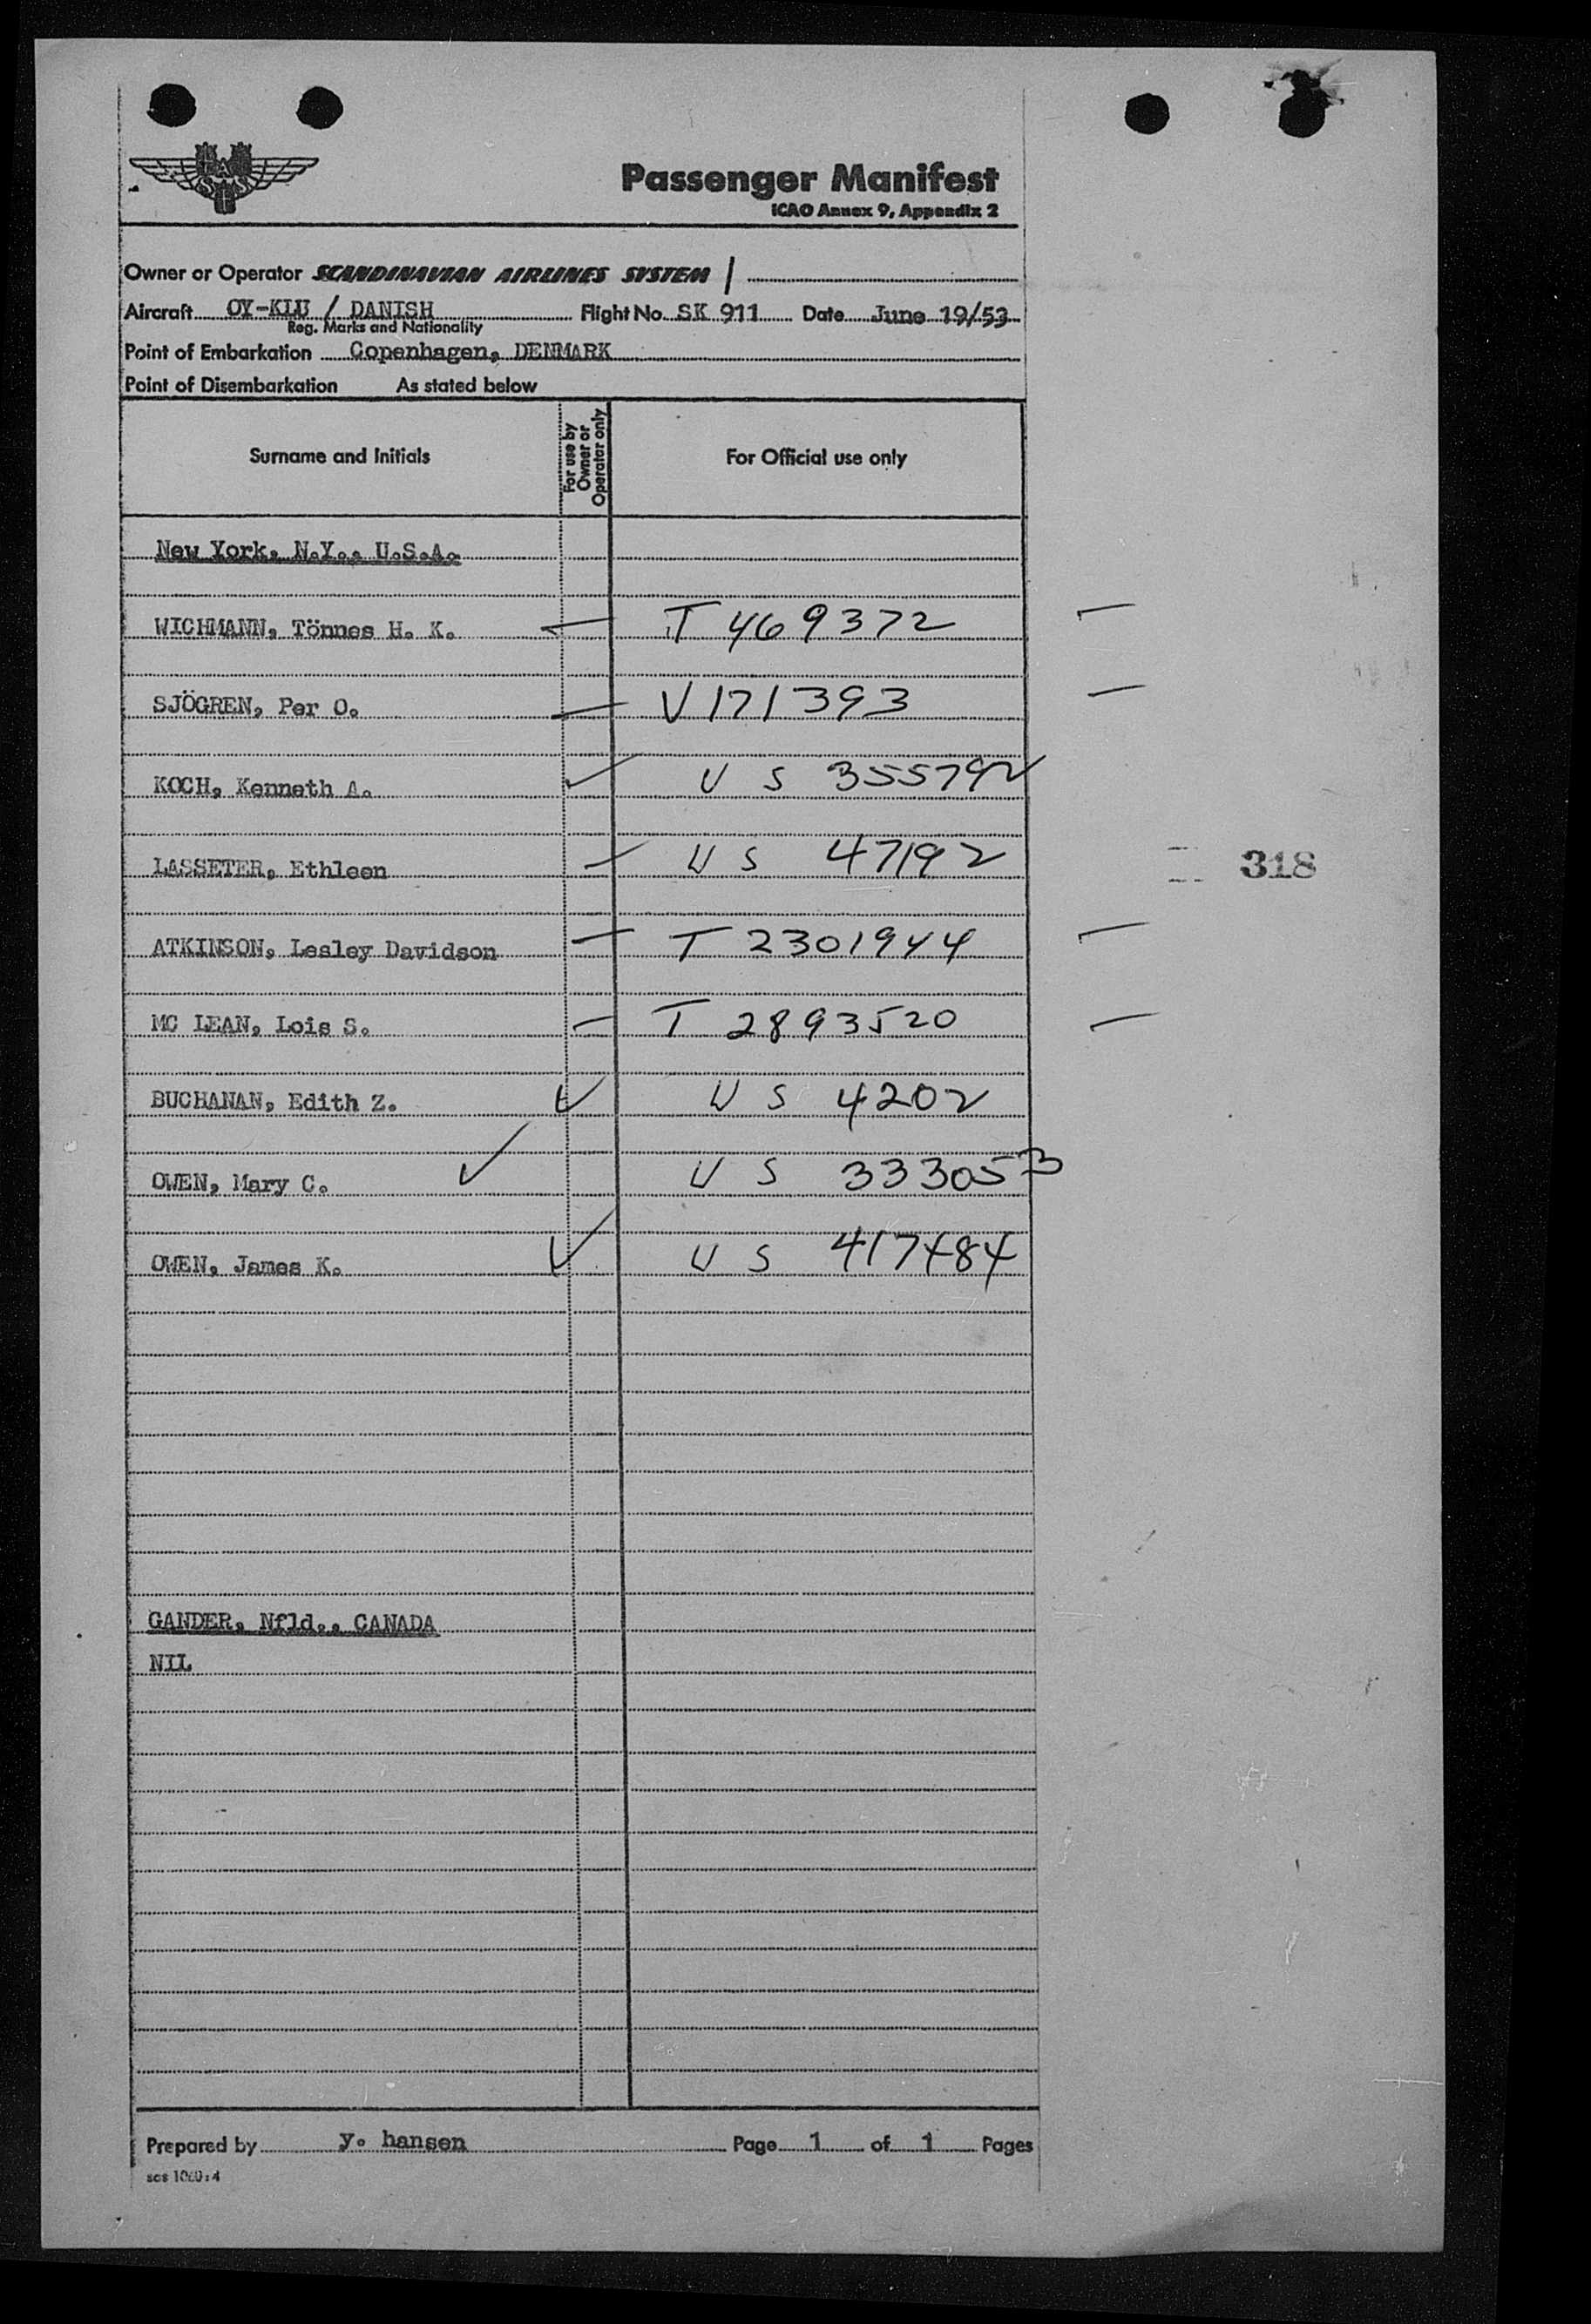 SAS
Passenger Manifest
ICAO Annex 9, Appendix 2
Owner or Operator SCANDINAVIAN AIRLINES SYSTEM /
Aircraft OY-KLU / DANISH Flight No. SK 911 Date June 19/53
Reg. Marks and Nationality
Point of Embarkation Copenhagen, DENMARK
Point of Disembarkation As stated below
Surname and Initials For use by Owner or Operator only For Official use only
New York, N.Y., U.S.A.
WICHMANN, Tönnes H. K. T 469372
SJÖGREN, Per O. V 171393
KOCH, Kenneth A. U S 355792
LASSETER, Ethleen U S 47192
318
ATKINSON, Lesley Davidson T 2301944
MC LEAN, Lois S. T 2893520
BUCHANAN, Edith Z. U S 4202
OWEN, Mary C. U S 333053
OWEN, James K. U S 417484
GANDER, Nfld., CANADA
NIL
Prepared by y. hansen Page 1 of 1 Pages